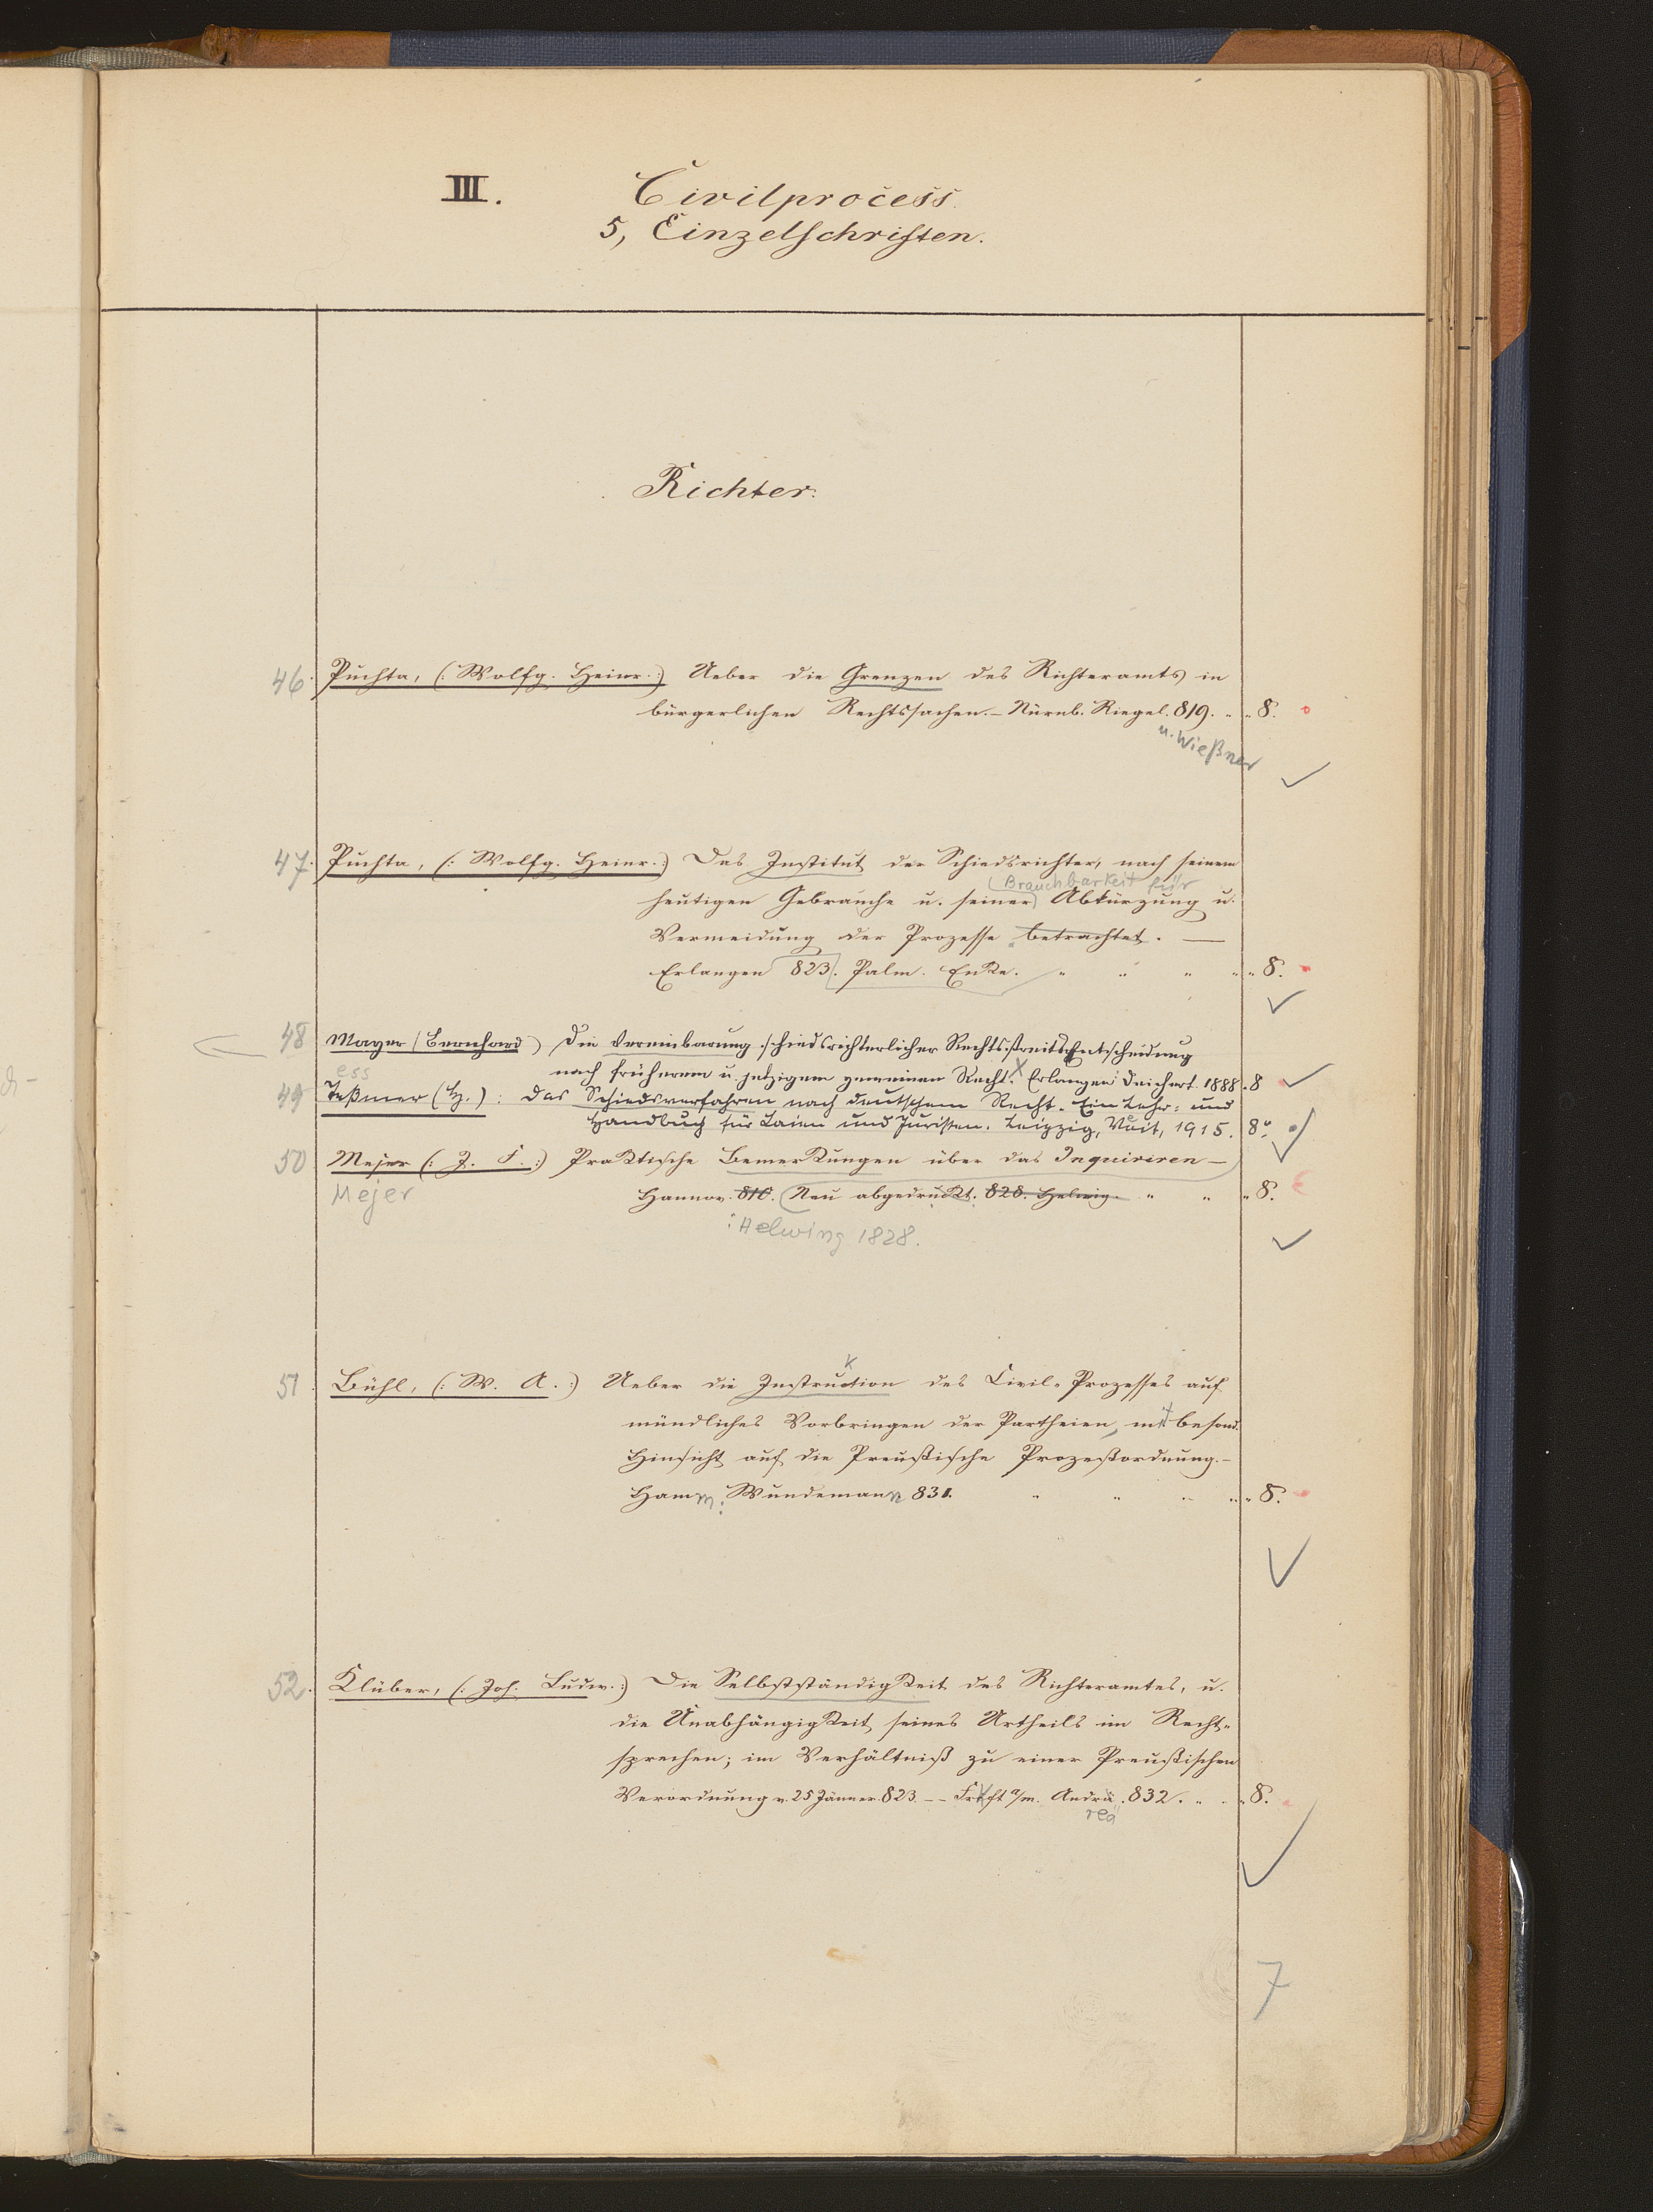 III. Civilprocess.
5, Einzelschriften.
Richter.
46. Puchta, (: Wolfg. Heinr. :) Ueber die Grenzen des Richteramts in
bürgerlichen Rechtssachen. – Nürnb. Riegel. 819. „ „ 8.
u. Wießner
47. Puchta, (: Wolfg. Heinr. :) Das Institut der Schiedsrichter, nach seinem
Brauchbarkeit für
heutigen Gebrauche u. seiner Abkürzung u.
Vermeidung der Prozesse betrachtet. —
Erlangen 823. Palm. Enke. „ „ „ „ „ 8.
48 Mayer (Bernhard) Die Vereinbarung schiedsrichterlicher Rechtsstreits-Entscheidung
nach früherem u. jetzigem gemeinen Recht. Erlangen: Deichert. 1888. 8
ess
49 Teßmer (H.): Das Schiedsverfahren nach deutschem Recht. Ein Lehr= und
Handbuch für Laien und Juristen. Leipzig, Veit, 1915. 8°.
50 Mejer (: J. F. :) Praktische Bemerkungen über das Inquiriren –
Mejer Hannov. 810. Neu abgedruckt. 828. Helwig. „ „ „ 8.
: Helwing 1828.
51. Bühl, (: W. A. :) Ueber die Instruction des Civil-Prozesses auf
k
mündliches Vorbringen der Partheien, mit besond.
Hinsicht auf die Preußische Prozeßordnung. –
Hamm: Wundemann 831. „ „ „ „ „ 8.
52. Klüber, (: Joh. Ludw. :) Die Selbstständigkeit des Richteramtes, u.
die Unabhängigkeit seines Urtheils im Recht-
sprechen; im Verhältniß zu einer Preußischen
Verordnung v. 25 Jänner 823. – – Frkft a/m. Andrä. 832. „ „ „ 8.
reä
7